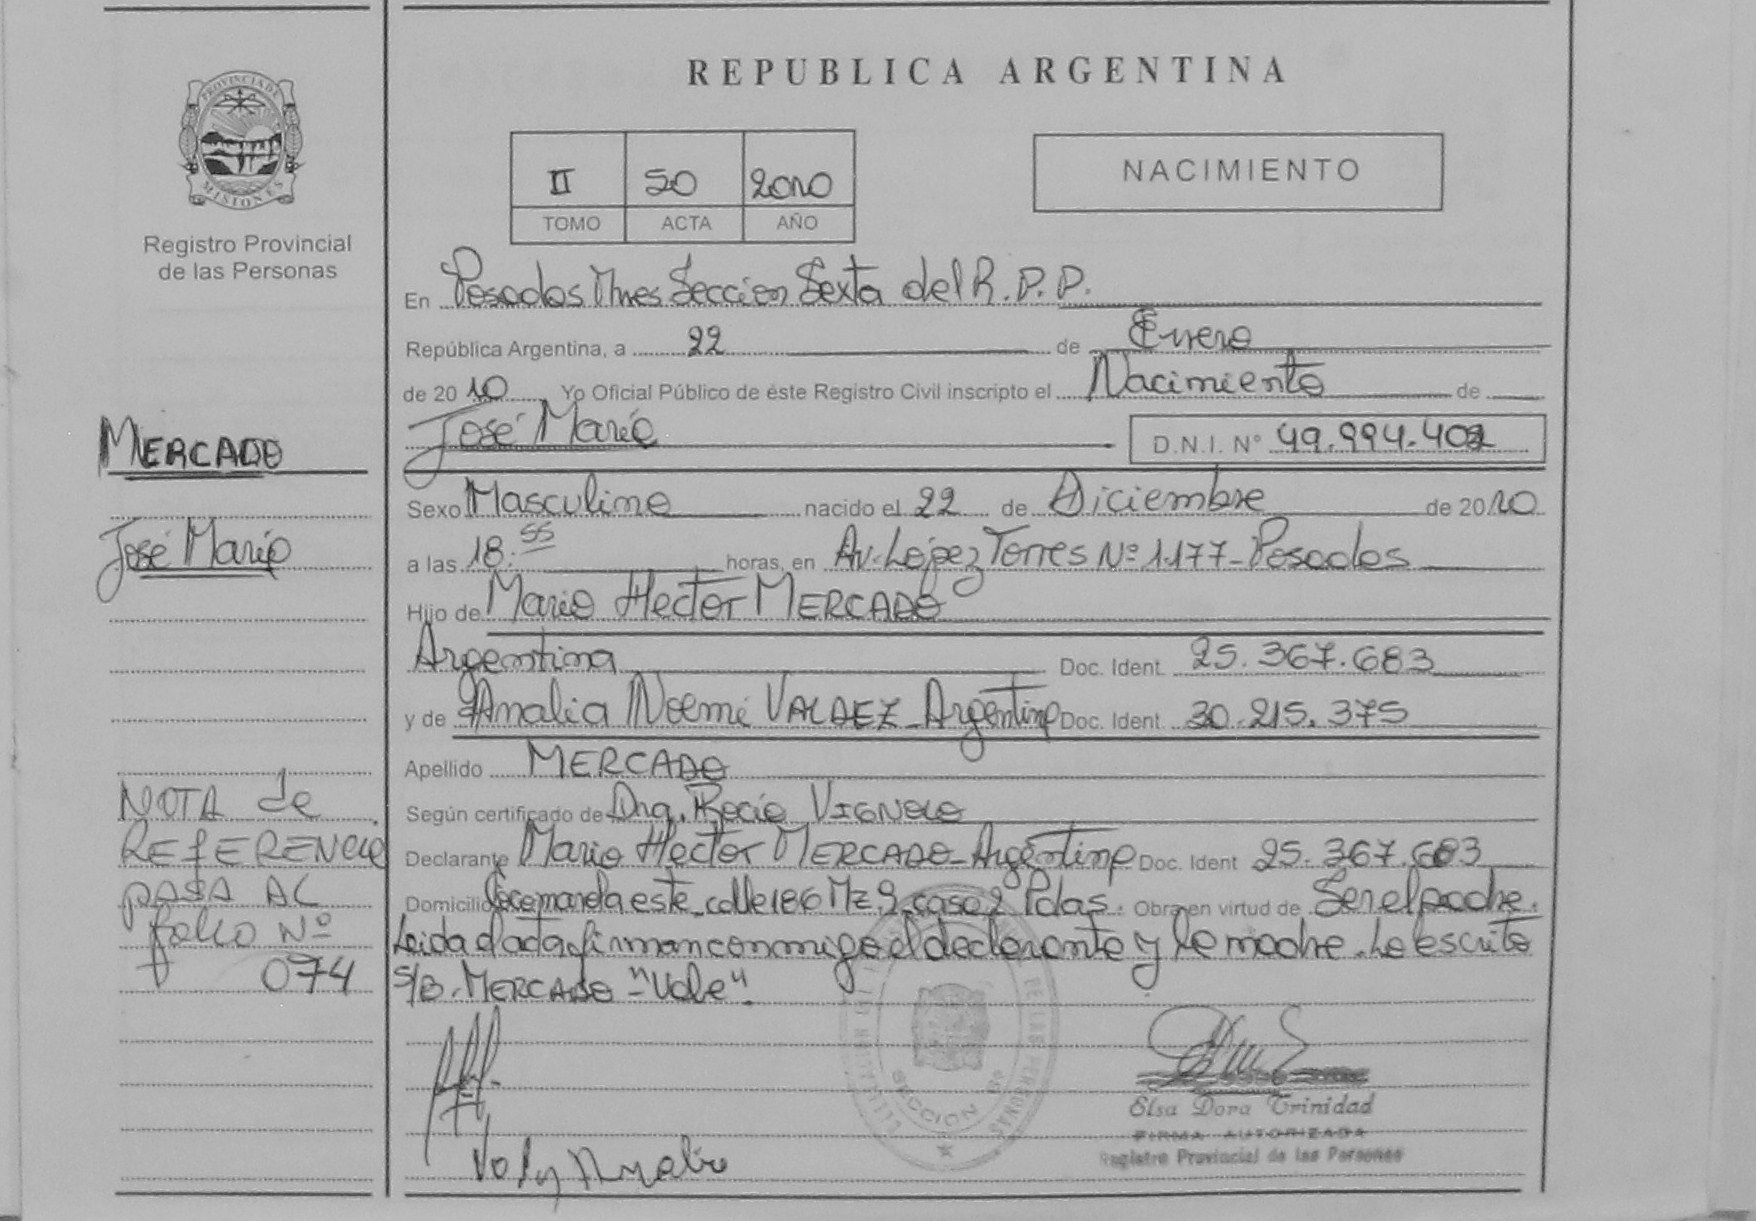 REPUBLICA ARGENTINA
PROVINCIA DE MISIONES
Registro Provincial
de las Personas
II 50 2010
TOMO ACTA AÑO
NACIMIENTO
En Posadas Mnes Seccion Sexta del R.P.P.
República Argentina, a 22 de Enero
de 2010 Yo Oficial Público de éste Registro Civil inscripto el Nacimiento de
José Mario D.N.I. Nº 49.994.402
MERCADO
José Mario
Sexo Masculino nacido el 22 de Diciembre de 2010
a las 18.55 horas, en Av. López Torres Nº 1177-Posadas
Hijo de Mario Hector MERCADO
Argentina Doc. Ident. 25.367.683
y de Analia Noemi VALDEZ-Argentina Doc. Ident. 30.215.375
Apellido MERCADO
Según certificado de Dra. Rocio VIGNOLO
Declarante Mario Hector MERCADO-Argentina Doc. Ident 25.367.683
Domicilio este calle 186 Mz 9 casa 2 Pdas. Obra en virtud de Ser el padre.
Leida el acta firman conmigo el declarante y la madre. Lo escrito
S/B. MERCADO -"Vale".
NOTA de
REfERENCIA
pasa AL
folio Nº
074
SECCION
Elsa Dora Trinidad
FIRMA AUTORIZADA
Registro Provincial de las Personas